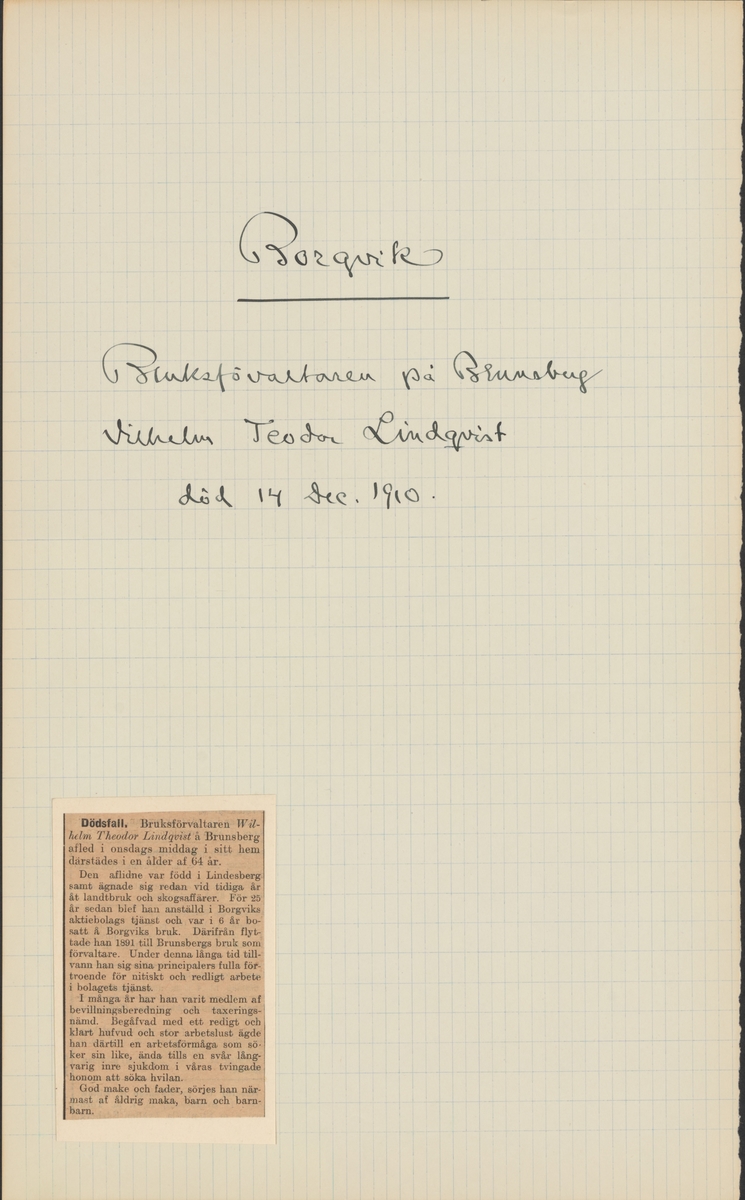 Borgvik
Bruksförvaltaren på Brunsberg
Vilhelm Teodor Lindqvist
död 14 Dec. 1910.
Dödsfall. Bruksförvaltaren Wil-
helm Theodor Lindqvist å Brunsberg
afled i onsdags middag i sitt hem
därstädes i en ålder af 64 år.
Den aflidne var född i Lindesberg
samt ägnade sig redan vid tidiga år
åt landtbruk och skogsaffärer. För 25
år sedan blef han anställd i Borgviks
aktiebolags tjänst och var i 6 år bo-
satt å Borgviks bruk. Därifrån flyt-
tade han 1891 till Brunsbergs bruk som
förvaltare. Under denna långa tid till-
vann han sig sina principalers fulla för-
troende för nitiskt och redligt arbete
i bolagets tjänst.
I många år har han varit medlem af
bevillningsberedning och taxerings-
nämd. Begåfvad med ett redigt och
klart hufvud och stor arbetslust ägde
han därtill en arbetsförmåga som sö-
ker sin like, ända tills en svår lång-
varig inre sjukdom i våras tvingade
honom att söka hvilan.
God make och fader, sörjes han när-
mast af åldrig maka, barn och barn-
barn.